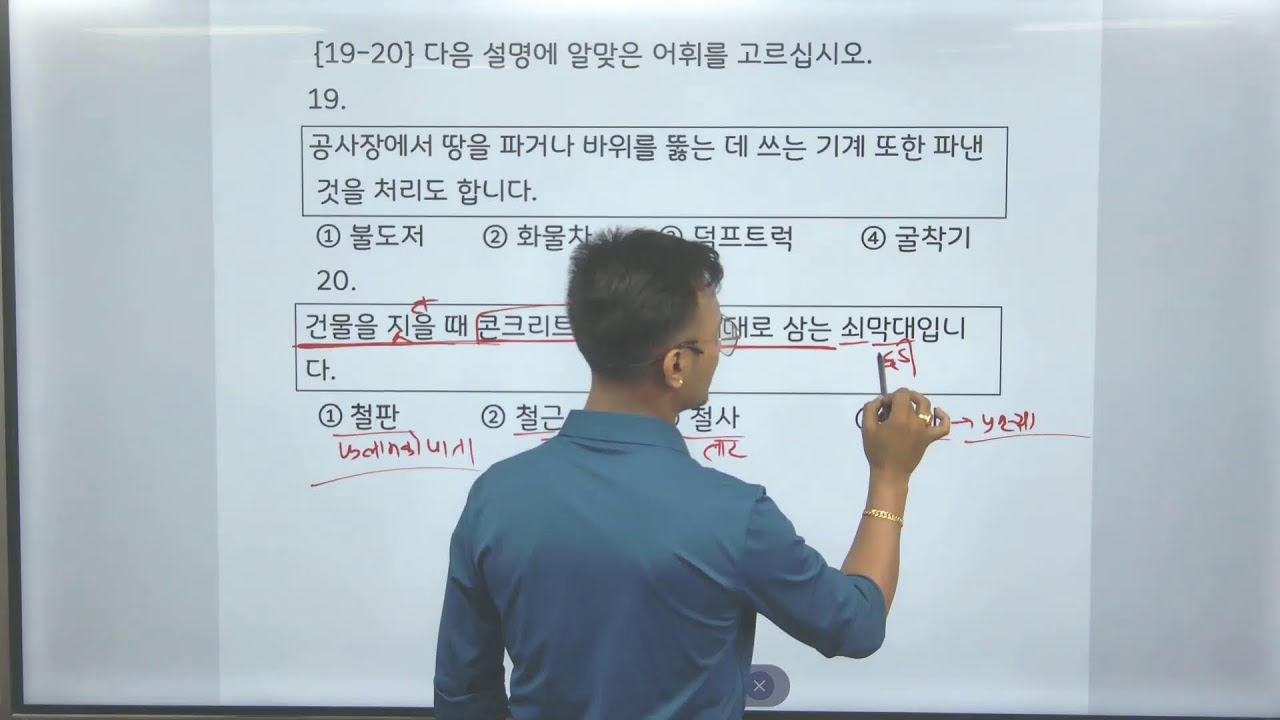 {19-20} 다음 설명에 알맞은 어휘를 고르십시오.
19.
공사장에서 땅을 파거나 바위를 뚫는 데 쓰는 기계 또한 파낸
것을 처리도 합니다.
① 불도저 ② 화물차 덤프트럭 ④ 굴착기
20.
건물을 짓을 때 콘크리트 삼는 쇠막대입니
다.
① 철판 ② 철근 철사
तार